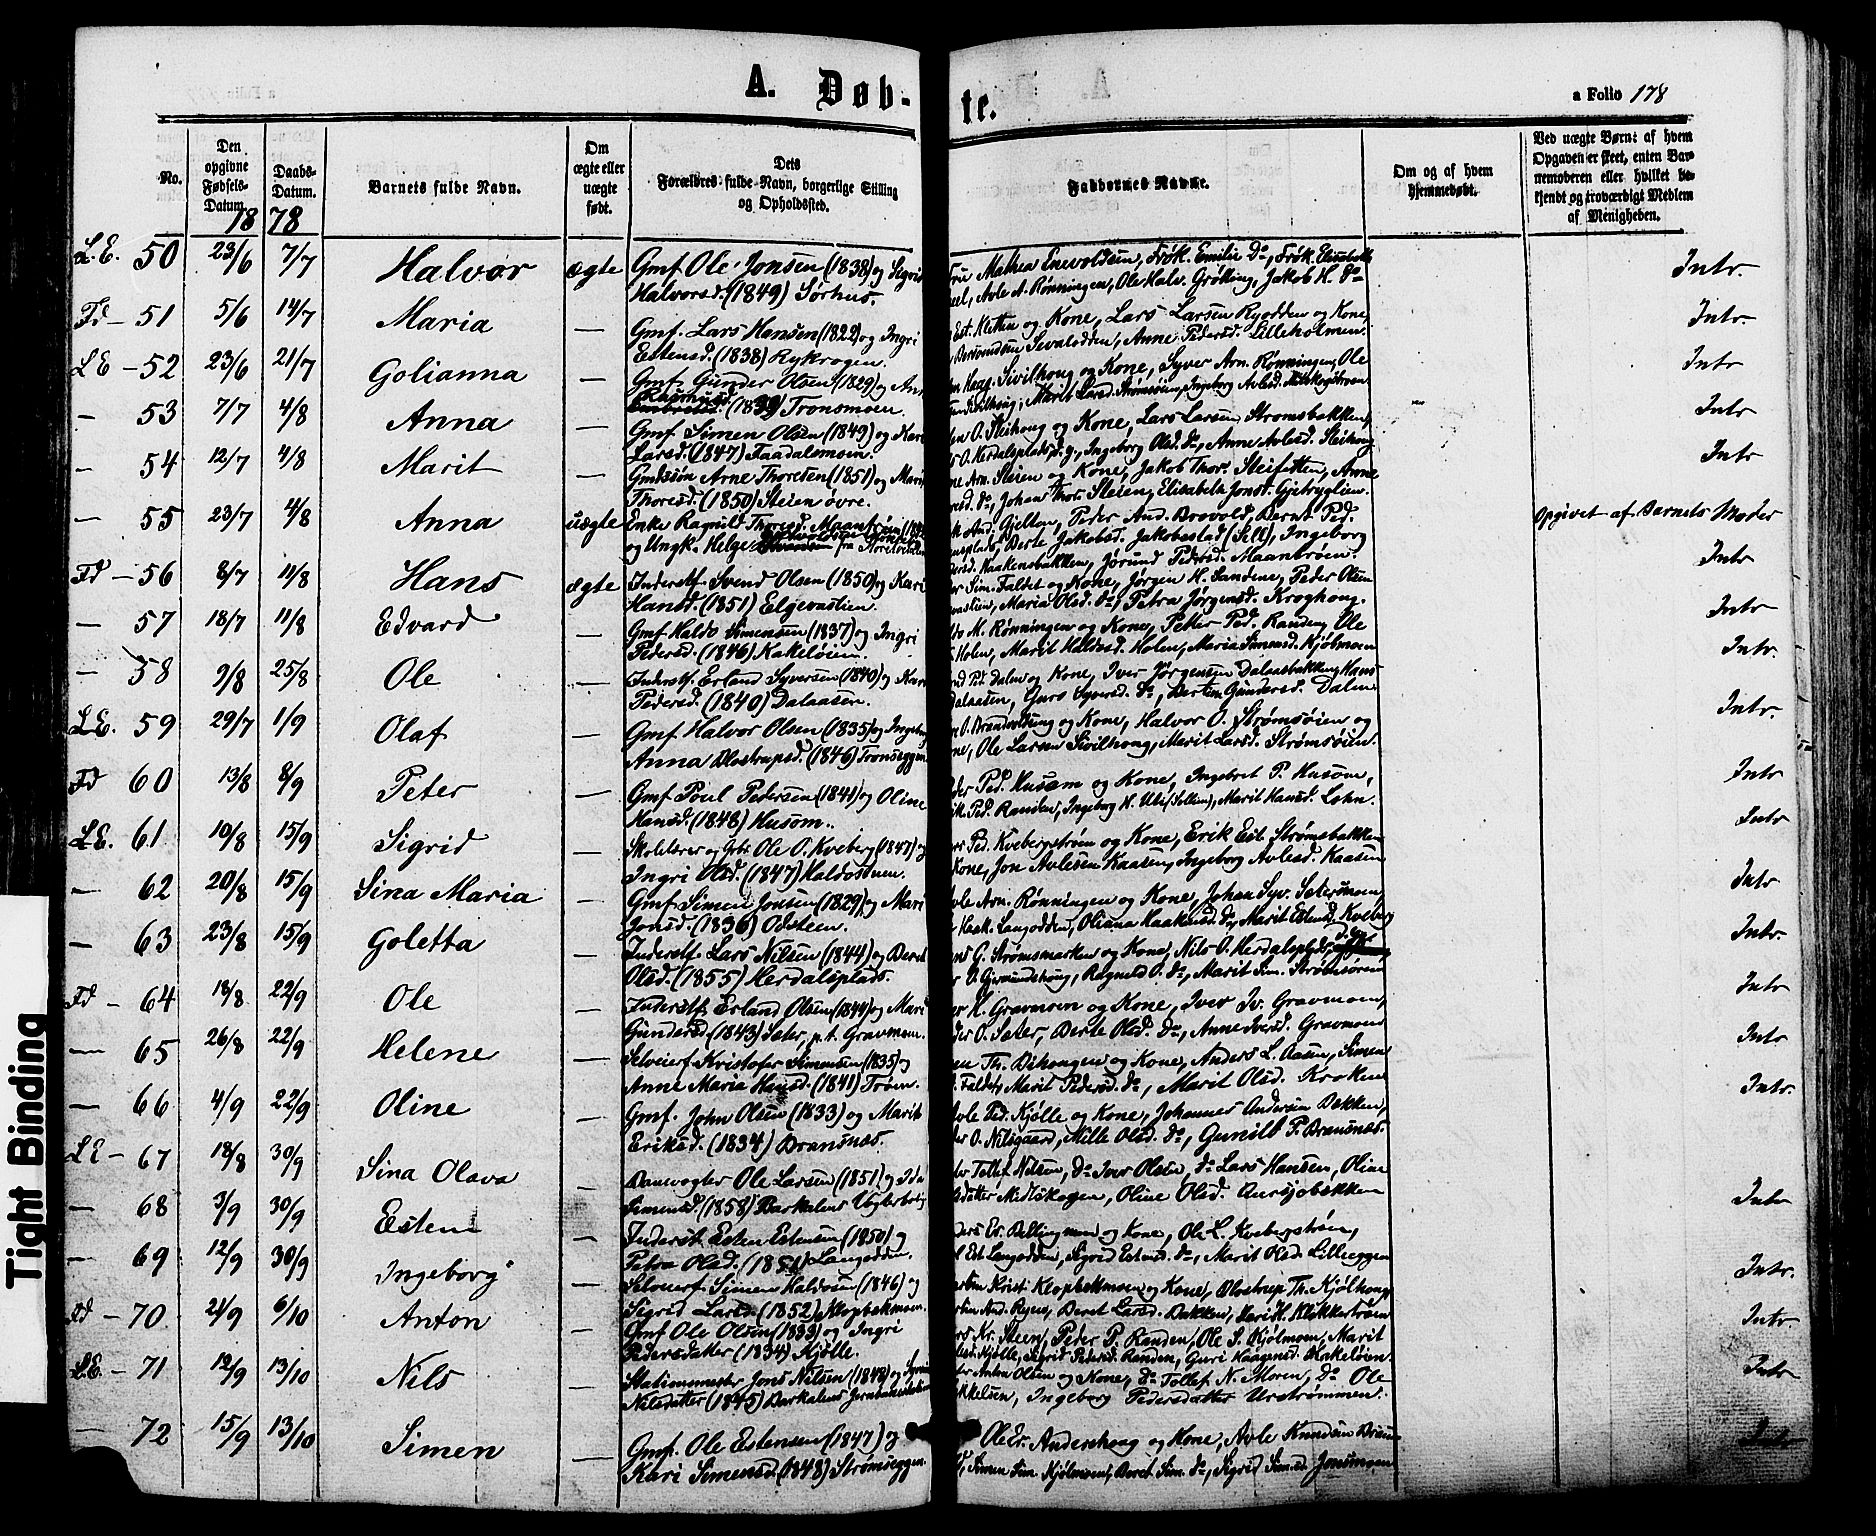 A. Døb-
te.
a Folio 178
No.
Den opgivne Fødsels-Datum.
Daabs-Datum.
Barnets fulde Navn.
Om ægte eller uægte født.
Dets Forældres fulde Navn, borgerlige Stilling og Opholdssted.
Faddernes Navne.
Om og af hvem hjemmedøbt.
Ved uægte Børn: af hvem Opgaven er skeet, enten Barnemoderen eller hvilket bekjendt og troværdigt Medlem af Menigheden.
1878
L.E. 50 23/6 7/7 Halvor ægte Gmf. Ole Jonsen (1838) og Sigrid
Halvorsd. (1849) Sørhus.
Mathea Enevoldsen, Frøk. Emilie Do, Frøk. Elisabeth
Avle A. Rønningen, Ole Halv. Grøtting, Jakob H. Do
Intr.
Fd - 51 5/6 14/7 Maria — Gmf. Lars Hansen (1822) og Ingri
Estensd. (1838) Rykrogen.
Est. Kletten og Kone, Lars Larsen Ryodden og Kone
Anne Pedersd. Lilleholmen.
Intr.
LE - 52 23/6 21/7 Golianna — Gmf. Gunder Olsen (1829) og
(1839) Tronsmoen.
Haag. Sivilhoug og Kone, Syver Arn. Rønningen, Ole
Marit Larsd. Strømsøien, Ingeborg Avlesd.
Intr.
— 53 7/7 4/8 Anna — Gmf. Simen Olsen (1849) og Kari
Larsd. (1847) Faadalsmoen.
O. Steihoug og Kone, Lars Larsen Strømsbakken,
O. Herdalsplads, Ingeborg Olsd. Do, Anne Avlesd. Steihoug
Intr
— 54 12/7 4/8 Marit — Gmdssøn Arne Thoresen (1851) og Marit
Thoresd. (1850) Steien øvre.
Arn. Steien og Kone, Jakob Thor. Steifetten, Anne
Do, Johan Thor. Steien, Elisabeth Jonsd. Gjetryglien.
Intr
— 55 23/7 4/8 Anna uægte Enke Ragnild Thoresd. Maantrøen
og Ungk. Helge fra
And. Gjelten, Peder And. Brovold, Bernt Ped.
Berte Jakobsd. Jakobsstad (Sell), Ingeborg
Haakensbakken, Jørund Pedersd. Maantrøen.
Opgivet af Barnets Moder
Fd - 56 8/7 11/8 Hans ægte Inderstf. Svend Olsen (1850) og Kari
Hansd. (1851) Elgevastien.
Sim. Faldet og Kone, Jørgen H. Sandene, Peder Olsen
Maria Olsd. Do, Petra Jørgensd. Kroghoug.
Intr
— 57 18/7 11/8 Edvard — Gmf Haldo Simensen (1837) og Ingri
Pedersd. (1846) Kakeløien.
M. Rønningen og Kone, Petter Ped. Randen, Ole
Holen, Marit Haldosd. Holen, Maria Simensd. Kjølmoen
Intr
— 58 9/8 25/8 Ole — Inderstf. Erland Syversen (1840) og Kari
Pedersd. (1840) Dalaasen.
Ped. Dalen og Kone, Iver Jørgensen Dalaasbakken, Hans
Dalaasen, Guro Syversd. Do, Berten Gundersd. Dalen
Intr.
L.E. 59 29/7 1/9 Olaf — Gmf Halvor Olsen (1835) og Ingeborg
Anna Olostrupsd. (1846) Tronseggen
O. Brandvoldsing og Kone, Halvor O. Strømsøien og
Ole Larsen Sivilhoug, Marit Larsd. Strømsøien.
Intr.
Fd 60 13/8 8/9 Peter — Gmf Poul Pedersen (1841) og Oline
Hansd. (1848) Husom.
Ped. Husom og Kone, Ingebret P. Husom,
Ped. Randen, Ingeborg H. Uti (Tollen), Marit Hansd. Lohn.
Intr
L.E. 61 10/8 15/9 Sigrid — Skolelærer og Gbr. Ole O. Kveberg (1847) og
Ingri Olsd. (1847) Haldostuen.
Ped. Kvebergstrøm og Kone, Erik Est. Strømsbakken
Kone, Jon Avlesen Kaasen, Ingeborg Avlesd. Kaasen
Intr
— 62 20/8 15/9 Sina Maria — Gmf. Simen Jonsen (1829) og Mari
Jonsd. (1836) Odsteen.
Arn. Rønningen og Kone, Johan Syv. Sætersmoen
Haak. Langodden, Oliana Haakensd. Do, Marit Estensd. Kveberg
Intr
— 63 23/8 15/9 Goletta — Inderstf. Lars Nilsen (1844) og Beret
Olsd. (1855) Herdalsplads.
G. Strømsmarken og Kone, Nils O. Herdalsplads,
O. Gjermundshoug, Ragnild O. Do, Marit Sim. Strømsøien
Intr.
Fd - 64 18/8 22/9 Ole — Inderstf. Erland Olsen (1844) og Mari
Gundersd (1843) Sæter, p.t. Gravmoen.
H. Gravmoen og Kone, Iver Iv. Gravmoen,
O. Sæter, Berte Olsd. Do, Anne Iversd. Gravmoen
Intr
— 65 26/8 22/9 Helene — Selveierf. Kristofer Simensen (1835) og
Anne Maria Hansd. (1841) Trøen.
Th. Bihougen og Kone, Anders L. Aasen, Simen
Faldet, Marit Pedersd. Do, Marit Olsd. Kroken
Intr
— 66 4/9 22/9 Oline — Gmf. John Olsen (1833) og Marit
Eriksd. (1834) Bransnæs.
Ped. Kjølle og Kone, Johannes Andersen Bekken,
O. Nilsgaard, Mille Olsd. Do, Gunild P. Bransnæs.
Intr.
LE - 67 18/8 30/9 Sina Olava — Banevogter Ole Larsen (1851) og Ida
Simensd. (1858) Barkalens Vogterbolig
Tollef Nilsen, Do Iver Olsen, Do Lars Hansen, Oline
Midtskogen, Oline Olsd. Aursjobakken
— 68 3/9 30/9 Esten — Inderst. Esten Estensen (1850) og
Petra Olsd. (1851) Langodden.
Er. Bellingmoen og Kone, Ole L. Kvebergstrøm,
Est. Langodden, Sigrid Estensd. Do, Marit Olsd. Lilleeggen
Intr.
— 69 12/9 30/9 Ingeborg — Selveierf. Simen Haldosen (1846) og
Sigrid Larsd. (1852) Klopbekmoen.
Krist. Klopbekmoen og Kone, Olostrup Th. Kjølhoug,
And. Ryen, Beret Larsd. Bekken, Mari H. Klokkertrøen
Intr.
Fd - 70 21/9 6/10 Anton — Gmf Ole Olsen (1833) og Ingri
Pedersdatter (1834) Kjølle.
Kr. Steen, Peder P. Randen, Ole S. Kjølmoen, Marit
Kjølle, Sigrid Pedersd. Randen, Guri Haagensd. Kakeløien
Intr
L.E. - 71 12/9 13/10 Nils — Stationsmester Jens Nilsen (1848) og
Nilsdatter (1845) Barkalens Jernbanestation
Anton Olsen og Kone, Do Tollef N. Moren, Do Ole
Mikkelsen, Ingeborg Pedersdatter Urstrømmen.
Intr
— 72 15/9 13/10 Simen — Gmf. Ole Estensen (1847) og
Kari Simensd. (1848) Strømseggen
Ole Er. Andershoug og Kone, Avle Knudsen
Simen Sim. Kjølmoen, Beret Sim. Do, Sigrid Simensd. Jonsmoen
Intr
Tight Binding